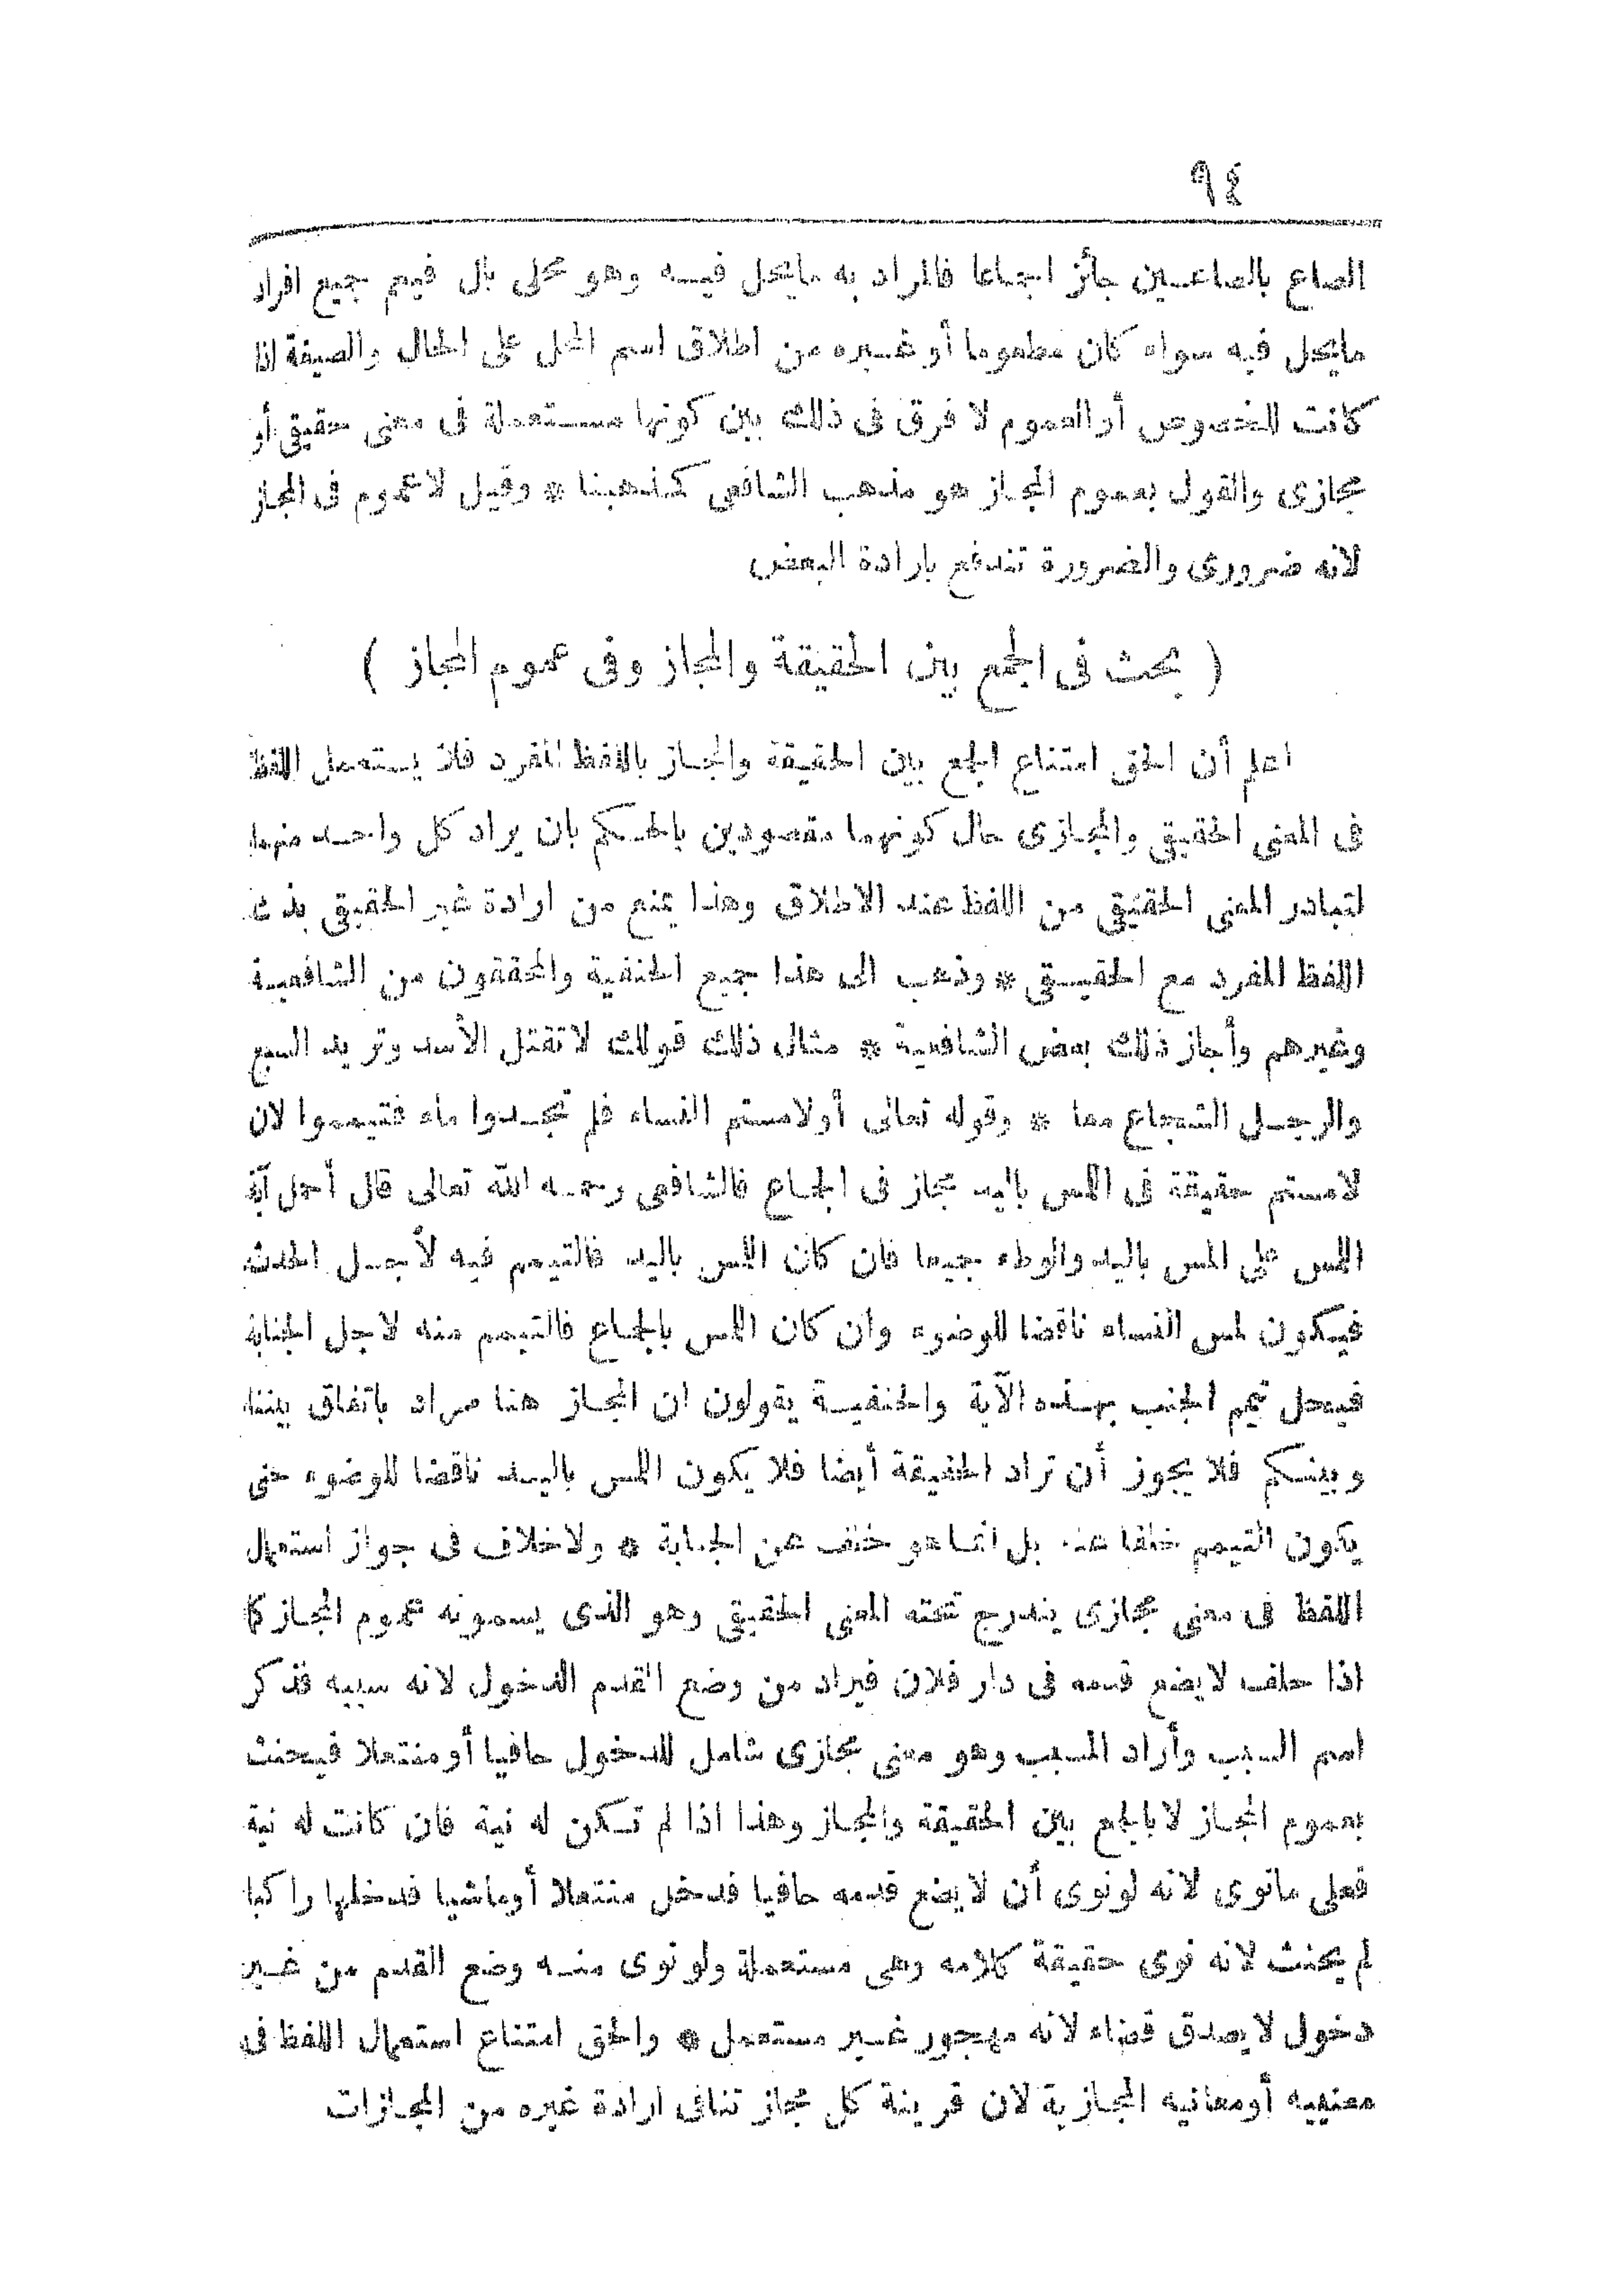 ٩٤
الصاع بالصاعين جائز اجماعا فالمراد به مايحل فيه وهو محلى بال فيعم جميع افراد
مايحل فيه سواء كان مطعوما أوغيره من اطلاق اسم المحل على الحال والصيغة اذا
كانت للخصوص أوالعموم لا فرق فى ذلك بين كونها مستعملة فى معنى حقيقى أو
مجازى والقول بعموم المجاز هو مذهب الشافعى كمذهبنا * وقيل لاعموم فى المجاز
لانه ضرورى والضرورة تندفع بارادة البعض
( بحث فى الجمع بين الحقيقة والمجاز وفى عموم المجاز )
اعلم أن الحق امتناع الجمع بين الحقيقة والمجاز باللفظ المفرد فلا يستعمل اللفظ
فى المعنى الحقيقى والمجازى حال كونهما مقصودين بالحكم بان يراد كل واحد منهما
لتبادر المعنى الحقيقى من اللفظ عند الاطلاق وهذا يمنع من ارادة غير الحقيقى بذلك
اللفظ المفرد مع الحقيقى * وذهب الى هذا جميع الحنفية والمحققون من الشافعية
وغيرهم وأجاز ذلك بعض الشافعية * مثال ذلك قولك لاتقتل الأسد وتريد السبع
والرجل الشجاع معا * وقوله تعالى أولامستم النساء فلم تجدوا ماء فتيمموا لان
لامستم حقيقة فى اللمس باليد مجاز فى الجماع فالشافعى رحمه الله تعالى قال أحمل آية
اللمس على المس باليد والوطء جميعا فان كان اللمس باليد فالتيمم فيه لأجل الحدث
فيكون لمس النساء ناقضا للوضوء وان كان اللمس بالجماع فالتيمم منه لاجل الجنابة
فيحل تيمم الجنب بهذه الآية والحنفية يقولون ان المجاز هنا مراد باتفاق بيننا
وبينكم فلا يجوز أن تراد الحقيقة أيضا فلا يكون اللمس باليد ناقضا للوضوء حتى
يكون التيمم خلفا عنه بل انما هو خلف عن الجنابة * ولاخلاف فى جواز استعمال
اللفظ فى معنى مجازى يندرج تحته المعنى الحقيقى وهو الذى يسمونه عموم المجاز كما
اذا حلف لايضع قدمه فى دار فلان فيراد من وضع القدم الدخول لانه سببه فذكر
اسم السبب وأراد المسبب وهو معنى مجازى شامل للدخول حافيا أومنتعلا فيحنث
بعموم المجاز لابالجمع بين الحقيقة والمجاز وهذا اذا لم تكن له نية فان كانت له نية
فعلى مانوى لانه لونوى أن لايضع قدمه حافيا فدخل منتعلا أوماشيا فدخلها راكبا
لم يحنث لانه نوى حقيقة كلامه وهى مستعملة ولو نوى منه وضع القدم من غير
دخول لايصدق قضاء لانه مهجور غير مستعمل * والحق امتناع استعمال اللفظ فى
معنييه أومعانيه المجازية لان قرينة كل مجاز تنافى ارادة غيره من المجازات